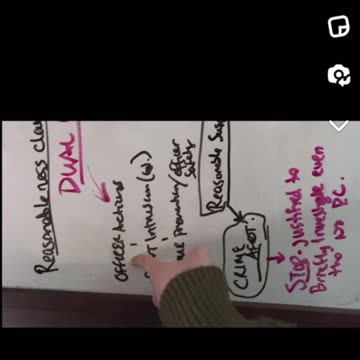 Reasonableness clau
DUAL
Officer Actions
T Intrusion (W.)
Prevention/Officer
Safety
Reasonable Sus
CRIME
AFOOT.
STOP - Justified to
Briefly Investigate even
tho no P.C.